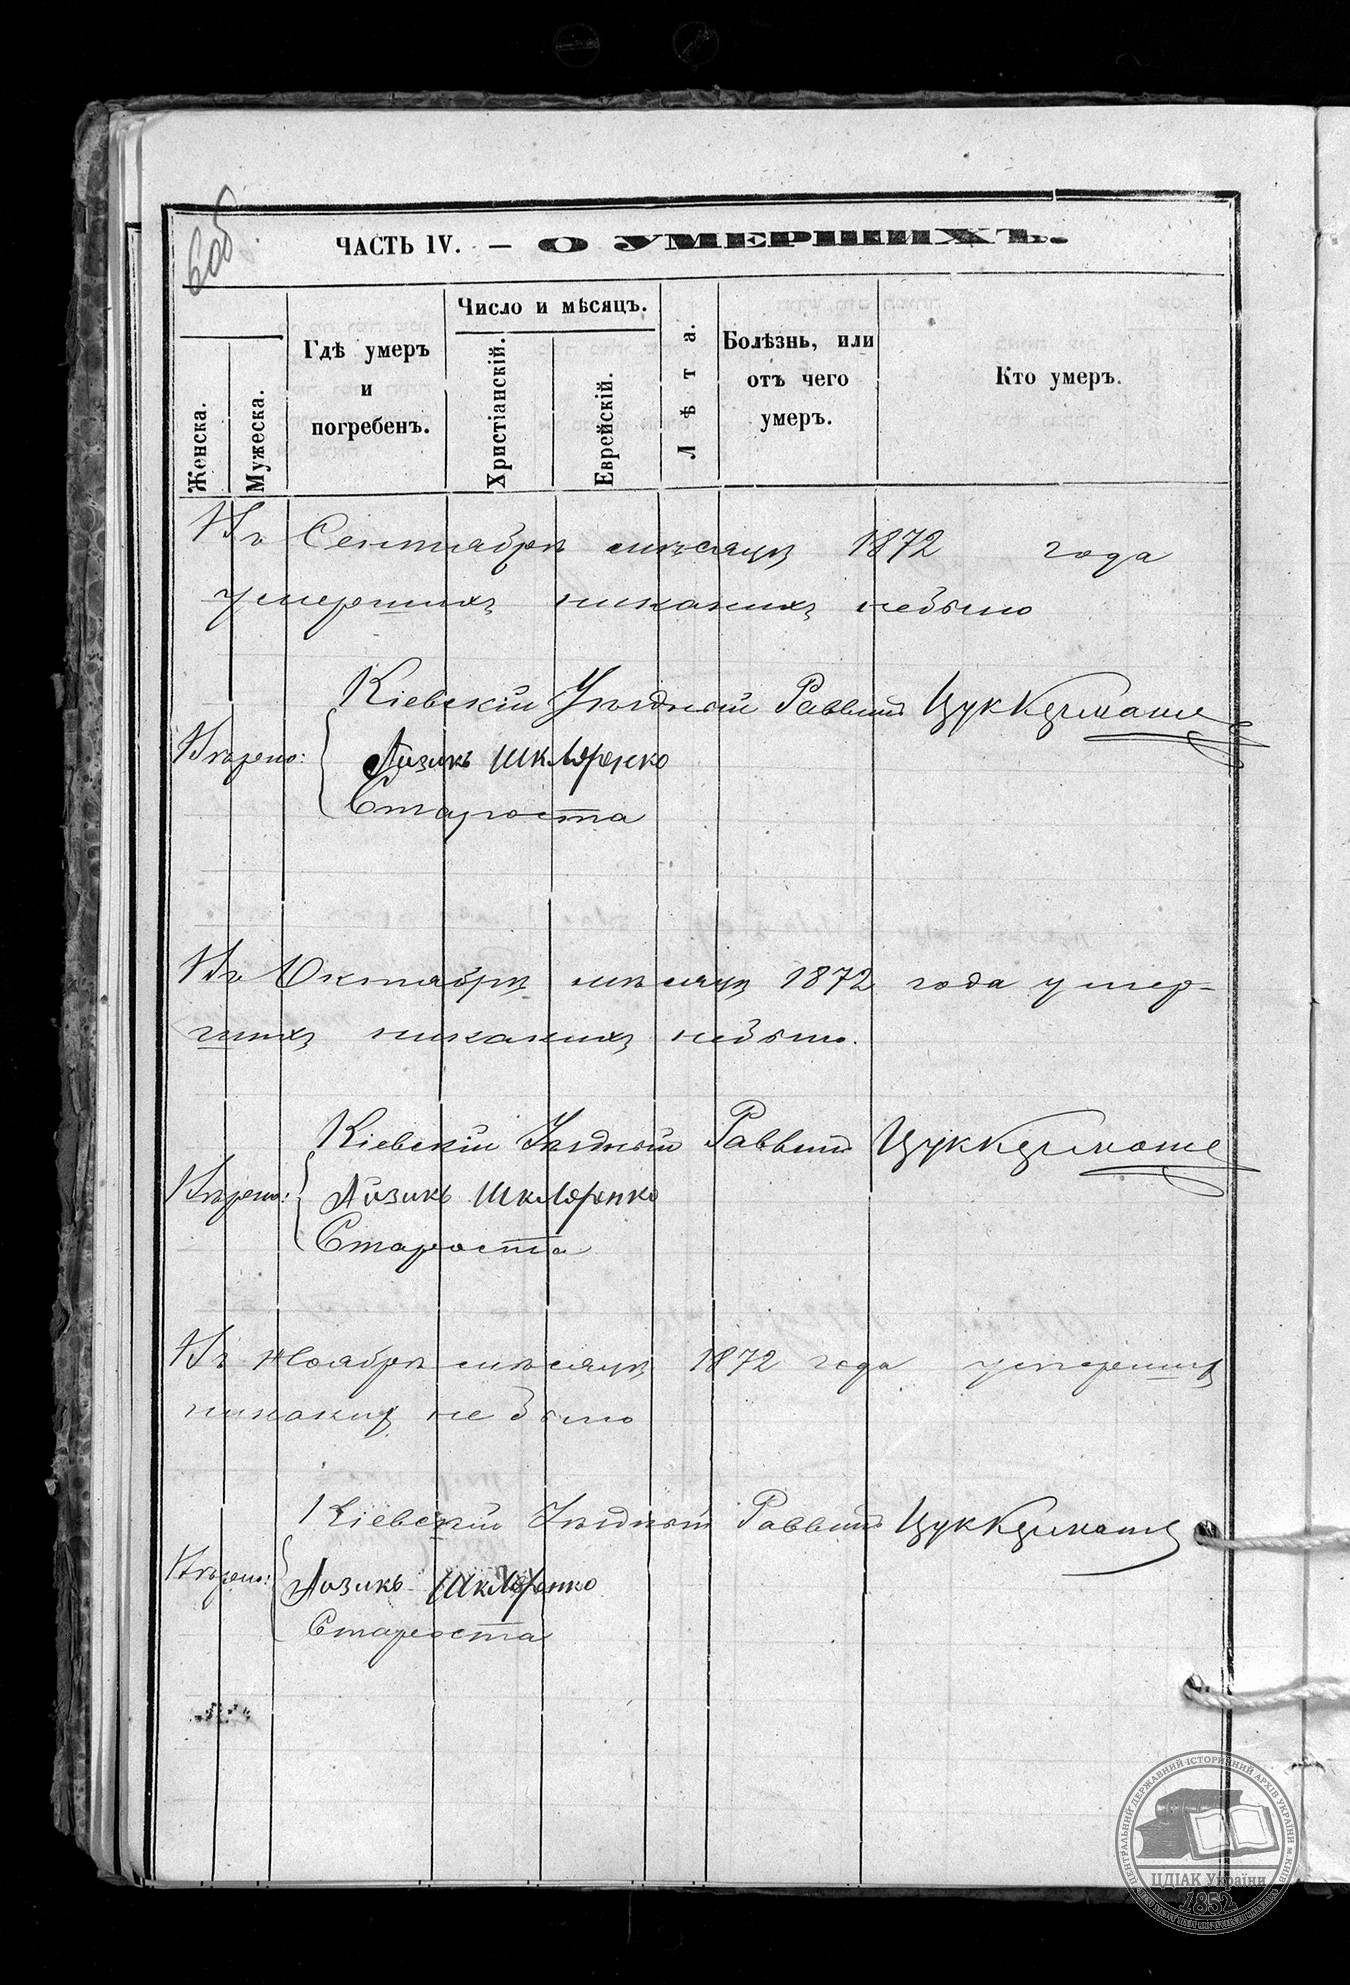 6об
ЧАСТЬ IV. — О УМЕРШИХЪ.
Женска.
Мужеска.
Гдѣ умеръ
и
погребенъ.
Число и мѣсяцъ.
Христіанскій.
Еврейскій.
Лѣта.
Болѣзнь, или
отъ чего
умеръ.
Кто умеръ.
Въ Сентябрѣ мѣсяцѣ 1872 года
умершихъ никакихъ небыло
Кіевскій Уѣздный Раввинъ Цуккерманъ
Вѣрно: Айзикъ Шкляренко
Староста
Въ Октябрѣ мѣсяцѣ 1872 года умер-
шихъ никакихъ небыло.
Кіевскій Уѣздный Раввинъ Цуккерманъ
Вѣрно: Айзикъ Шкляренко
Староста
Въ Ноябрѣ мѣсяцѣ 1872 года умершихъ
никакихъ не было
Кіевскій Уѣздный Раввинъ Цуккерманъ
Вѣрно: Айзикъ Шкляренко
Староста
ЦЕНТРАЛЬНИЙ ДЕРЖАВНИЙ ІСТОРИЧНИЙ АРХІВ УКРАЇНИ м. КИЇВ
ЦДІАК України
1852